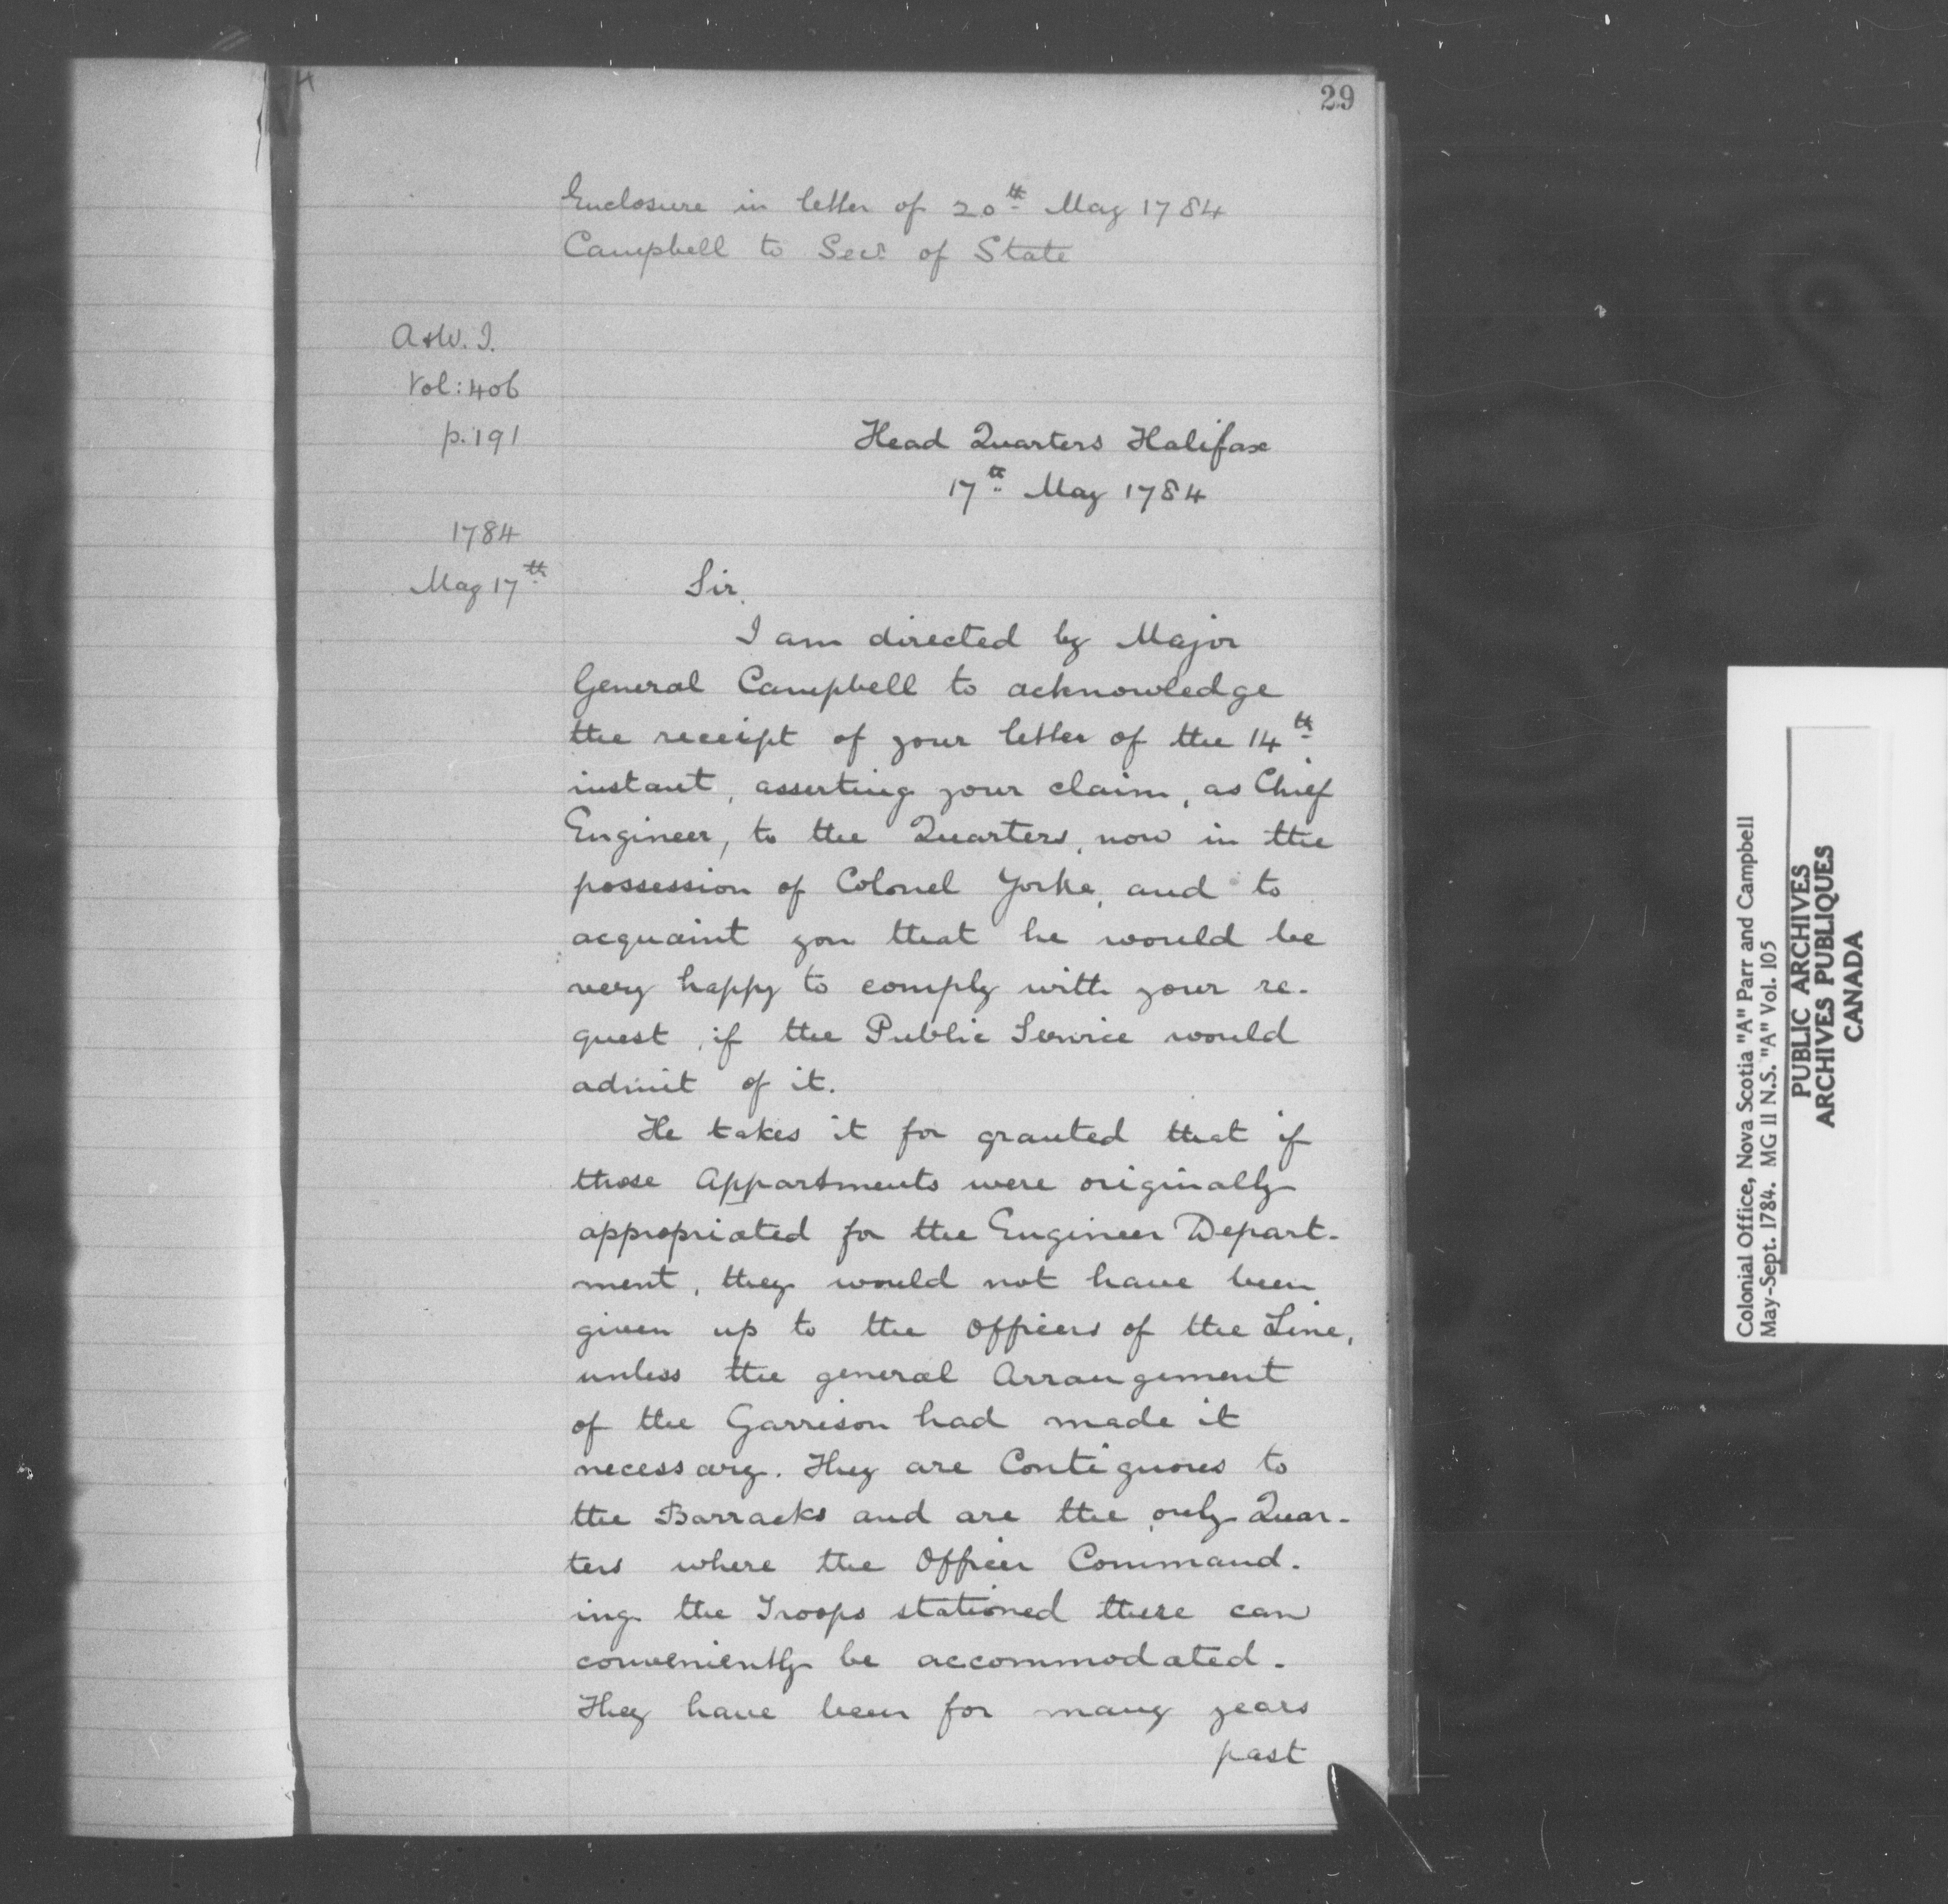 29
Enclosure in letter of 20th May 1784
Campbell to Secy of State
A & W. I.
Vol: 406
p. 191
Head Quarters Halifax
17th May 1784
1784
May 17th
Sir,
I am directed by Major
General Campbell to acknowledge
the receipt of your letter of the 14th
instant, asserting your claim, as Chief
Engineer, to the Quarters, now in the
possession of Colonel Yorke, and to
acquaint you that he would be
very happy to comply with your re-
quest, if the Public Service would
admit of it.
He takes it for granted that if
those Appartments were originally
appropriated for the Engineer Depart-
ment, they would not have been
given up to the Officers of the Line,
unless the general Arrangement
of the Garrison had made it
necessary. They are Contiguous to
the Barracks and are the only Quar-
ters where the Officer Command-
ing the Troops stationed there can
conveniently be accommodated.
They have been for many years
past
Colonial Office, Nova Scotia "A" Parr and Campbell
May-Sept. 1784. MG 11 N.S. "A" Vol. 105
PUBLIC ARCHIVES
ARCHIVES PUBLIQUES
CANADA